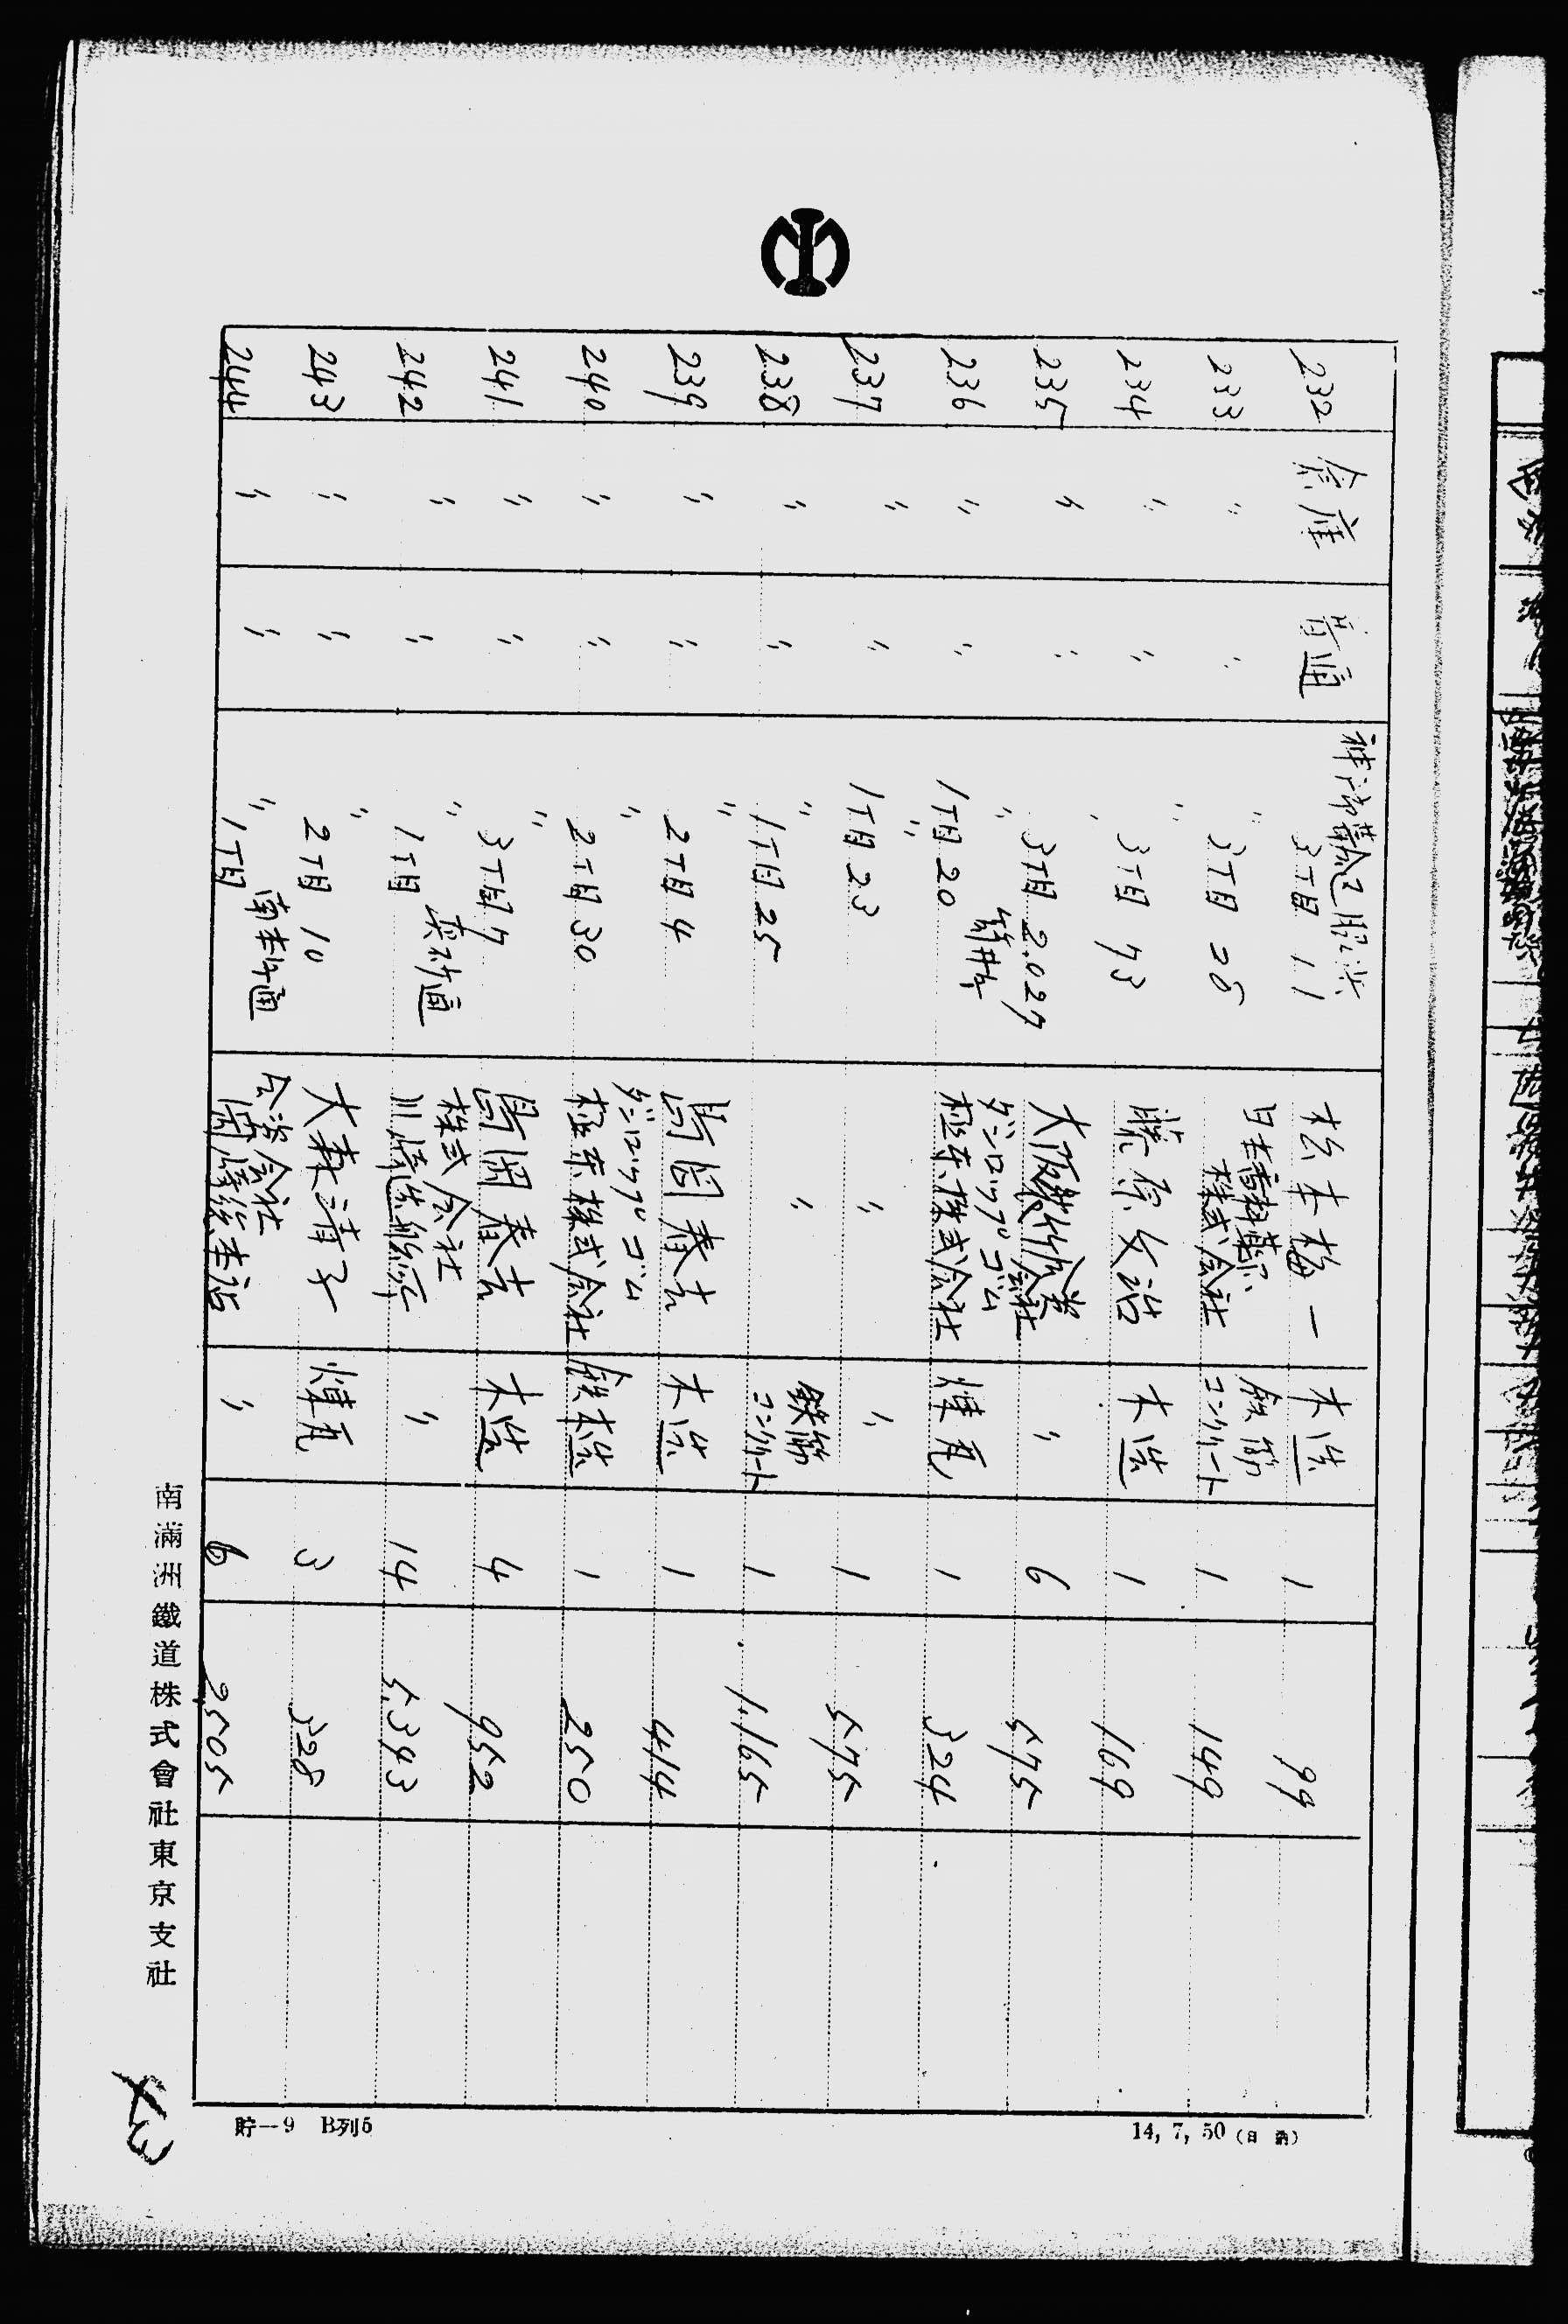 232 倉庫 普通 神戸市葺合区脇浜 3丁目 11 松本梅一 木造 1 99
233 〃 〃 〃 3丁目 28 日本香料薬品株式会社 鉄筋コンクリート 1 149
234 〃 〃 〃 3丁目 73 藤原文治 木造 1 169
235 〃 〃 〃 3丁目 2.027 大阪 会社 〃 6 575
236 〃 〃 〃 筒井町 1丁目 20 ダンロップゴム極東株式会社 煉瓦 1 324
237 〃 〃 〃 1丁目 23 〃 〃 1 575
238 〃 〃 〃 1丁目 25 〃 鉄筋コンクリート 1 1.165
239 〃 〃 〃 2丁目 4 島岡春吉 木造 1 414
240 〃 〃 〃 2丁目 30 ダンロップゴム極東株式会社 鉄木造 1 250
241 〃 〃 〃 3丁目 7 島岡春吉 木造 4 952
242 〃 〃 〃 真砂通 1丁目 株式会社川崎造船所 〃 14 5.393
243 〃 〃 〃 2丁目 10 大森清子 煉瓦 3 328
244 〃 〃 〃 南本町通 1丁目 合資会社 〃 6 2,505
南滿洲鐵道株式會社東京支社
貯—9 B列5
14, 7, 50 (日 納)